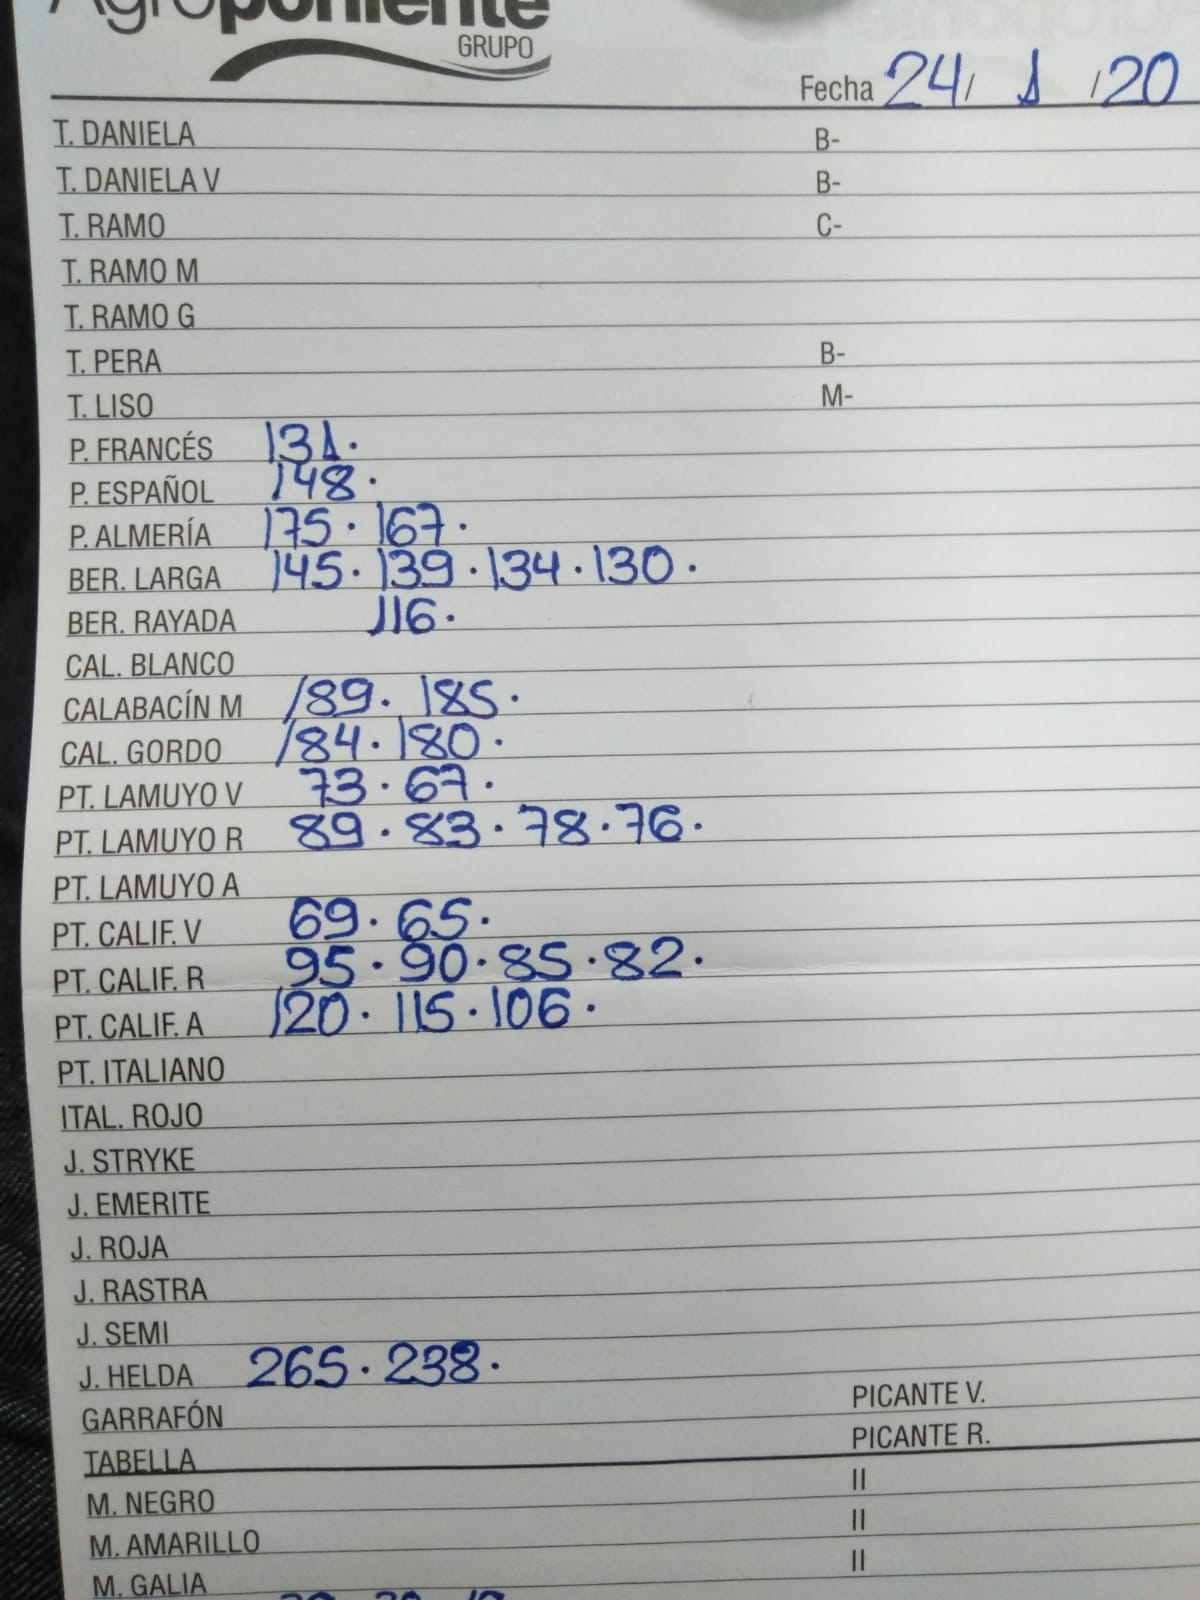 Agroponiente
GRUPO
Fecha 24/ 1 /20
T. DANIELA B-
T. DANIELA V B-
T. RAMO C-
T. RAMO M
T. RAMO G
T. PERA B-
T. LISO M-
P. FRANCÉS 131.
P. ESPAÑOL 148.
P. ALMERÍA 175. 167.
BER. LARGA 145. 139. 134. 130.
BER. RAYADA 116.
CAL. BLANCO
CALABACÍN M 189. 185.
CAL. GORDO 184. 180.
PT. LAMUYO V 73. 67.
PT. LAMUYO R 89. 83. 78. 76.
PT. LAMUYO A
PT. CALIF. V 69. 65.
PT. CALIF. R 95. 90. 85. 82.
PT. CALIF. A 120. 115. 106.
PT. ITALIANO
ITAL. ROJO
J. STRYKE
J. EMERITE
J. ROJA
J. RASTRA
J. SEMI
J. HELDA 265. 238.
GARRAFÓN PICANTE V.
TABELLA PICANTE R.
M. NEGRO II
M. AMARILLO II
M. GALIA II